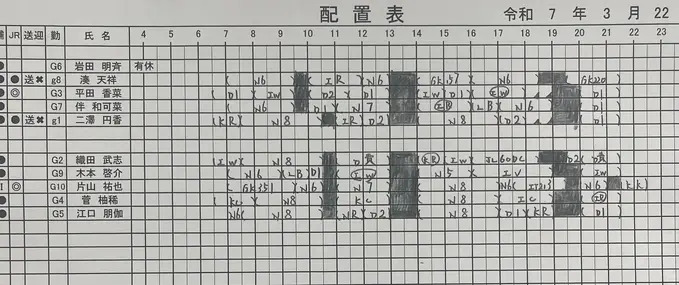 配置表 令和 7 年 3 月 22
JR 送迎 勤 氏 名 4 5 6 7 8 9 10 11 12 13 14 15 16 17 18 19 20 21 22 23
G6 岩田 明斉 有休
● ● 送✖ g8 湊 天祥 N6 IR N6 GK157 N6 GK220
● ◎ G3 平田 香菜 D1 IW D2 D1 IW D1 IW D1
● G7 伴 和可菜 N6 D1 N7 LB N6 D1
● ● 送✖ g1 二澤 円香 KR N8 IR D2 N8 D2
● G2 織田 武志 IW N8 KR IW D2
● G9 木本 啓介 N6 LB D1 IW N5 IV IW
◎ G10 片山 祐也 GK351 N6 N7 N8 N6 N6 KK
● G4 菅 柚稀 KC N8 KC N8 IC
● G5 江口 朋伽 N6 N8 NR D2 N8 D1 KR D1